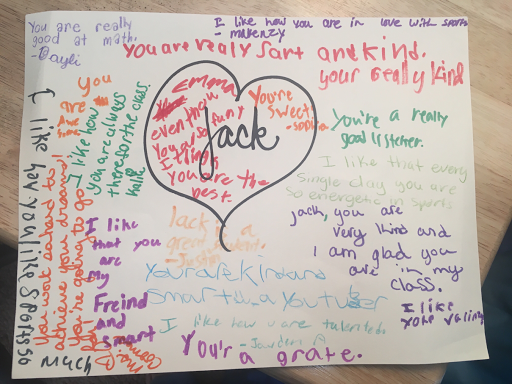 You are really
good at math.
- Dayli
I like how you are in love with sports
- makenzy
You are realy sart and kind.
your really kind
Emma
even thow
funy
I think
you are the
best.
Jack
You're
sweet
You're a really
good listener.
I like that every
single day you are
so energetic in sports
Jack, you are
very kind and
I am glad you
are in my
class.
I like how
you are always
there for the class.
I like how you like sports so
much
You work so hard to
achieve your dreams!
you're going to
I like
that you
are
my
Freind
and
smart
Jack is a
great
You are kind and
smart
I like how u are talented
- Jayden A
I like
your
You'r a grate.